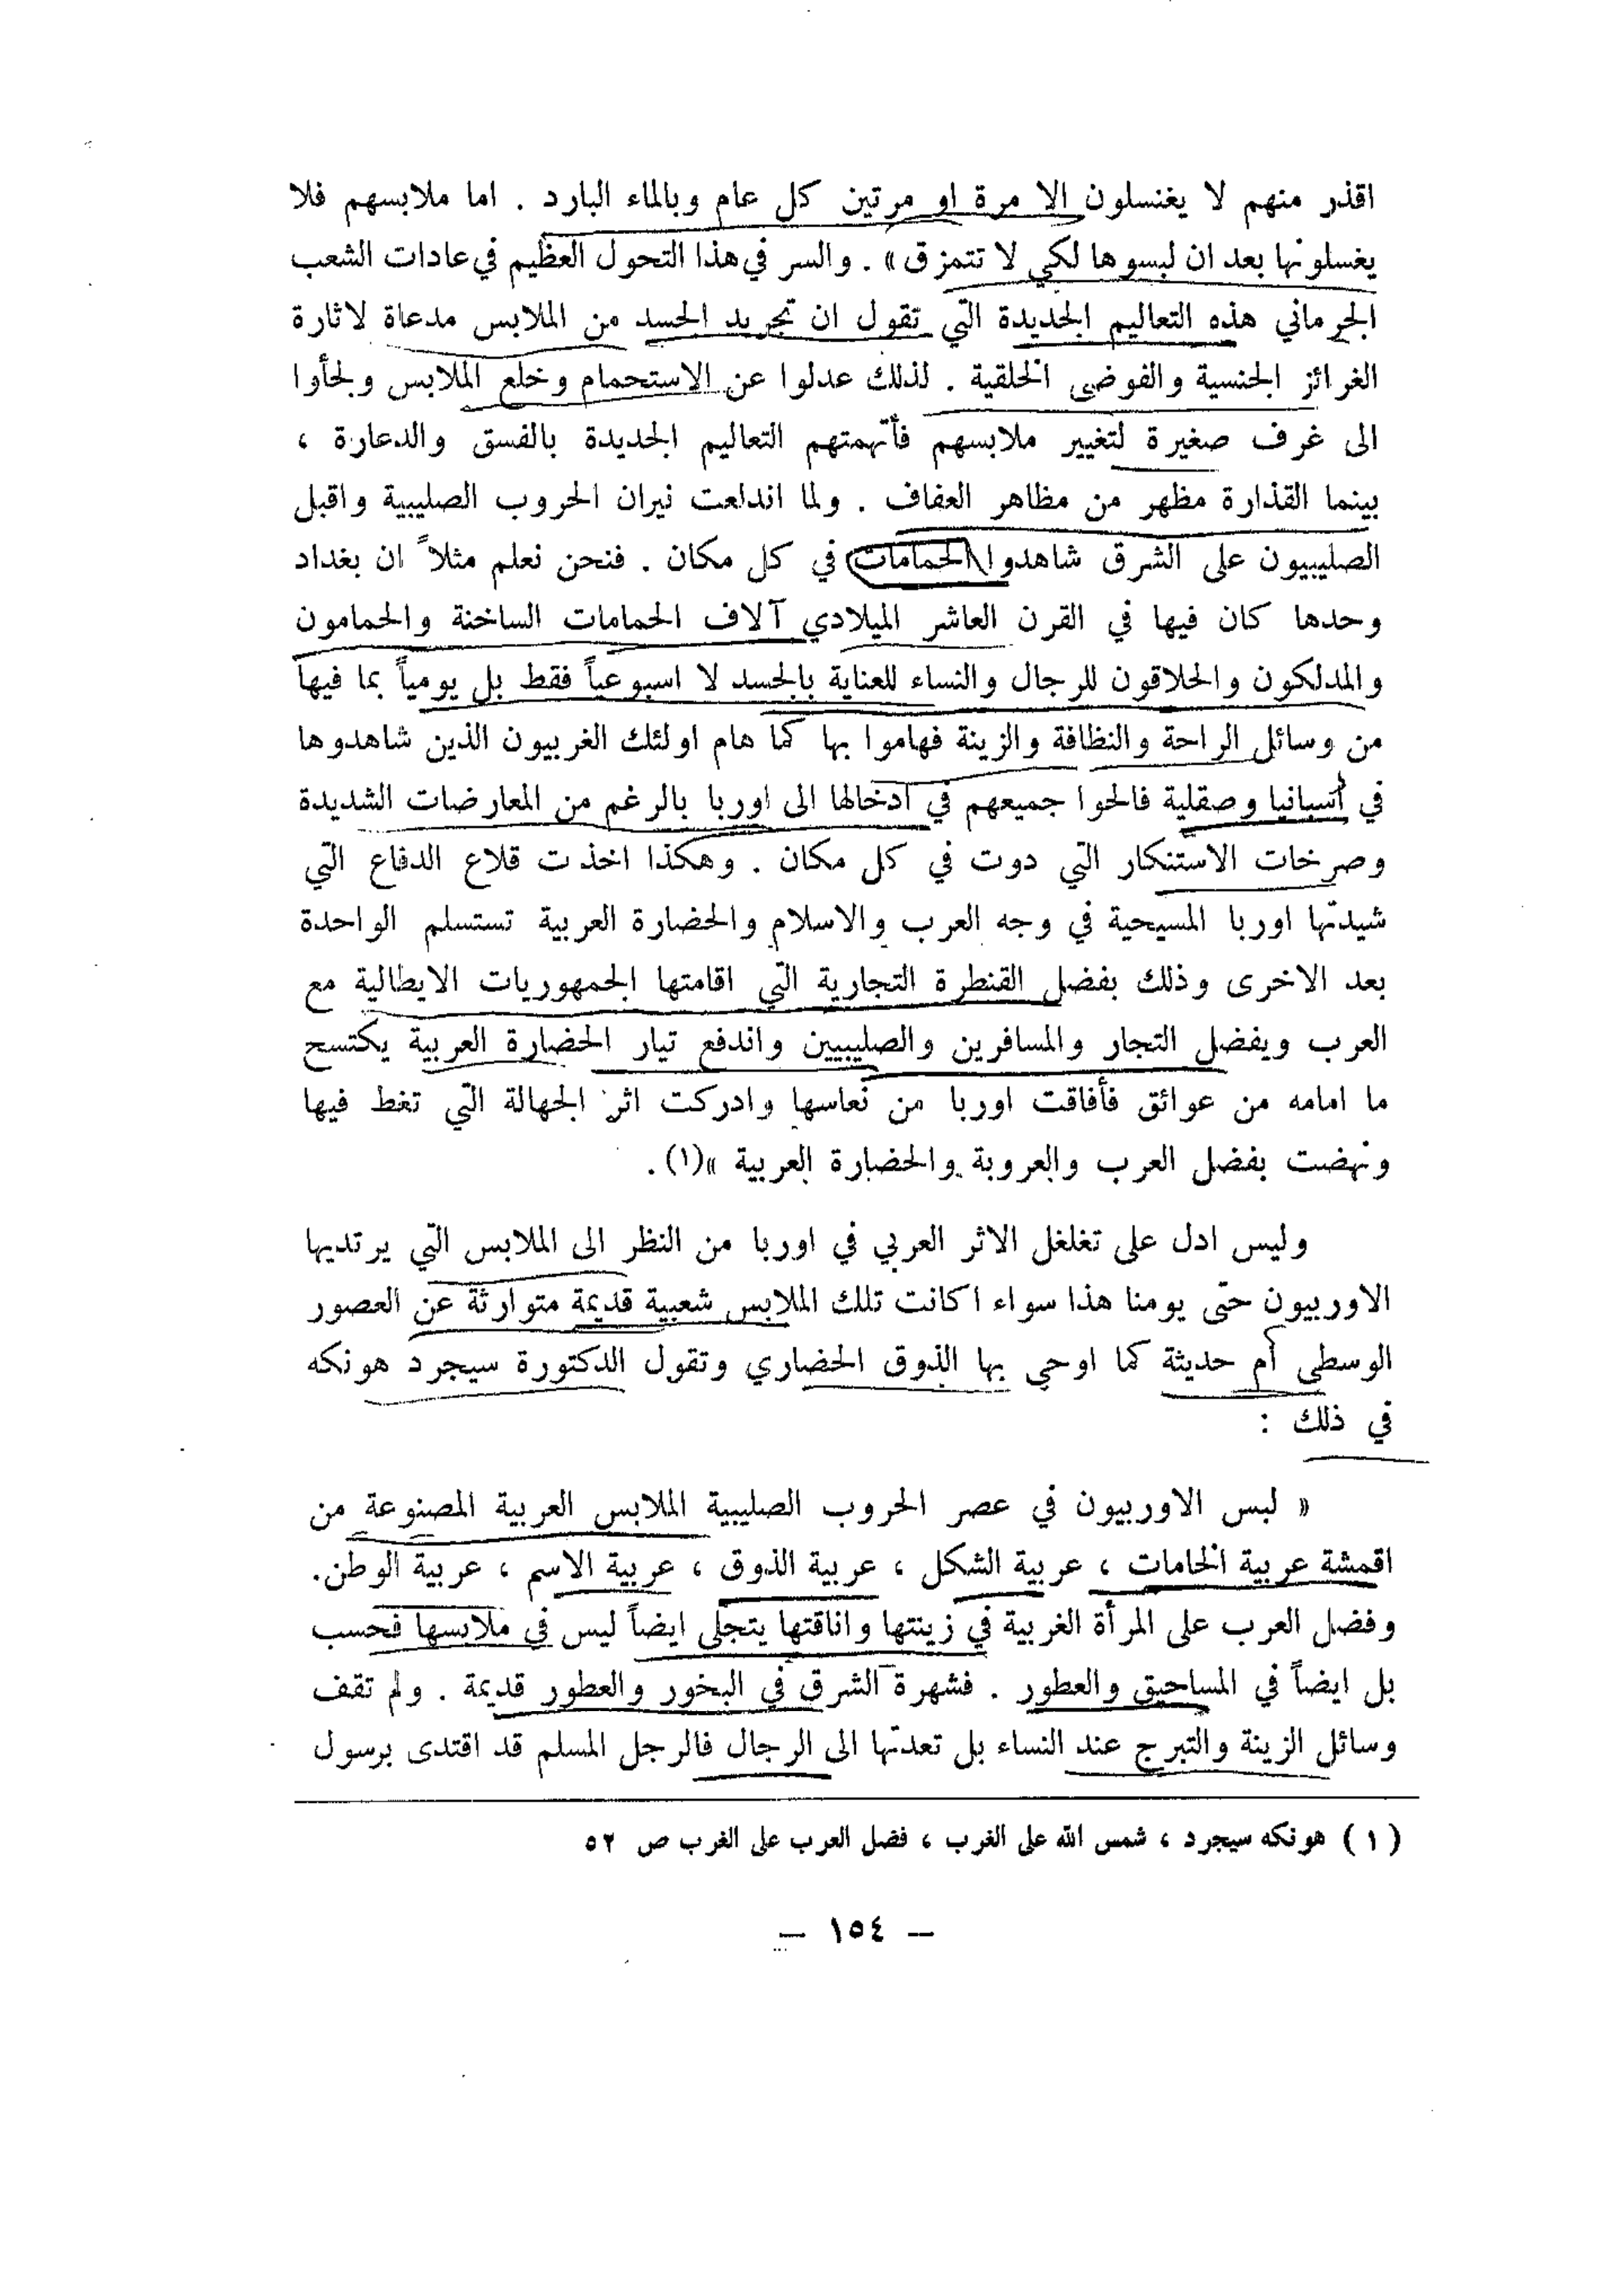 اقذر منهم لا يغنسلون الا مرة او مرتين كل عام وبالماء البارد . اما ملابسهم فلا
يغسلونها بعد ان لبسوها لكي لا تتمزق » . والسر في هذا التحول العظيم في عادات الشعب
الجرماني هذه التعاليم الجديدة التي تقول ان تجريد الجسد من الملابس مدعاة لاثارة
الغرائز الجنسية والفوضى الخلقية . لذلك عدلوا عن الاستحمام وخلع الملابس ولجأوا
الى غرف صغيرة لتغيير ملابسهم فأتهمتهم التعاليم الجديدة بالفسق والدعارة ،
بينما القذارة مظهر من مظاهر العفاف . ولما اندلعت نيران الحروب الصليبية واقبل
الصليبيون على الشرق شاهدوا الحمامات في كل مكان . فنحن نعلم مثلاً ان بغداد
وحدها كان فيها في القرن العاشر الميلادي آلاف الحمامات الساخنة والحمامون
والمدلكون والحلاقون للرجال والنساء للعناية بالجسد لا اسبوعياً فقط بل يومياً بما فيها
من وسائل الراحة والنظافة والزينة فهاموا بها كما هام اولئك الغربيون الذين شاهدوها
في أسبانيا وصقلية فالحوا جميعهم في ادخالها الى اوربا بالرغم من المعارضات الشديدة
وصرخات الاستنكار التي دوت في كل مكان . وهكذا اخذت قلاع الدفاع التي
شيدتها اوربا المسيحية في وجه العرب والاسلام والحضارة العربية تستسلم الواحدة
بعد الاخرى وذلك بفضل القنطرة التجارية التي اقامتها الجمهوريات الايطالية مع
العرب وبفضل التجار والمسافرين والصليبيين واندفع تيار الحضارة العربية يكتسح
ما امامه من عوائق فأفاقت اوربا من نعاسها وادركت اثر الجهالة التي تغط فيها
ونهضت بفضل العرب والعروبة والحضارة العربية »(١) .
وليس ادل على تغلغل الاثر العربي في اوربا من النظر الى الملابس التي يرتديها
الاوربيون حتى يومنا هذا سواء اكانت تلك الملابس شعبية قديمة متوارثة عن العصور
الوسطى أم حديثة كما اوحى بها الذوق الحضاري وتقول الدكتورة سيجرد هونكه
في ذلك :
« لبس الاوربيون في عصر الحروب الصليبية الملابس العربية المصنوعة من
اقمشة عربية الخامات ، عربية الشكل ، عربية الذوق ، عربية الاسم ، عربية الوطن.
وفضل العرب على المرأة الغربية في زينتها واناقتها يتجلى ايضاً ليس في ملابسها فحسب
بل ايضاً في المساحيق والعطور . فشهرة الشرق في البخور والعطور قديمة . ولم تقف
وسائل الزينة والتبرج عند النساء بل تعدتها الى الرجال فالرجل المسلم قد اقتدى برسول
(١) هونكه سيجرد ، شمس الله على الغرب ، فضل العرب على الغرب ص ٥٢
— ١٥٤ —